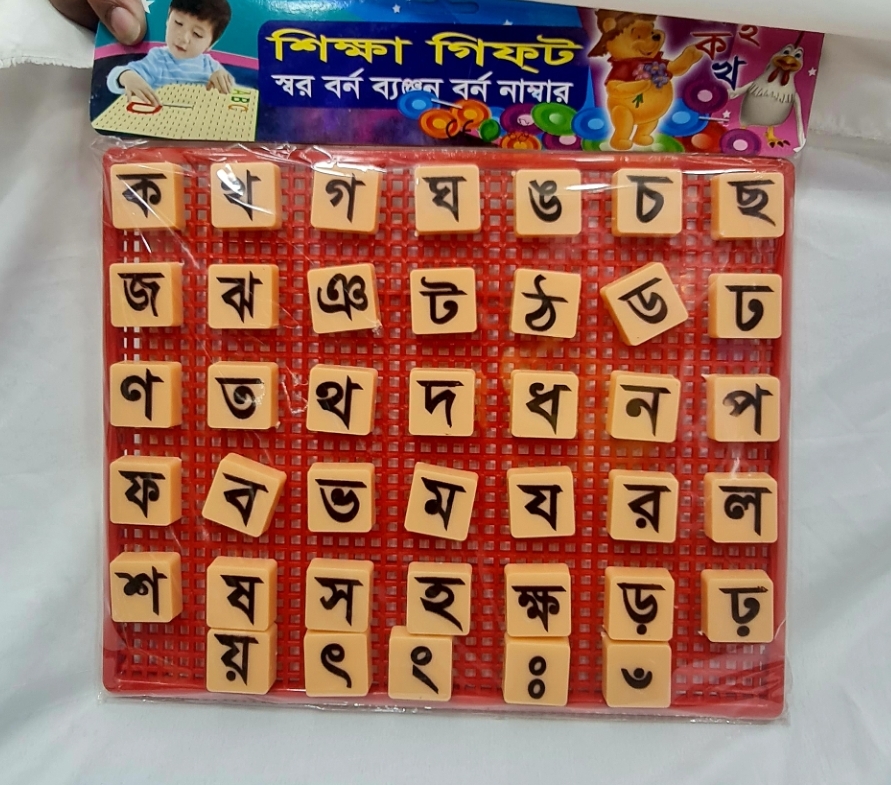 শিক্ষা গিফট
স্বর বর্ন ব্যঞ্জন বর্ন নাম্বার
ক হ
খ
ABC
ক খ গ ঘ ঙ চ ছ
জ ঝ ঞ ট ঠ ড ঢ
ণ ত থ দ ধ ন প
ফ ব ভ ম য র ল
শ ষ স হ ক্ষ ড় ঢ়
য় ৎ ং ঃ ঁ